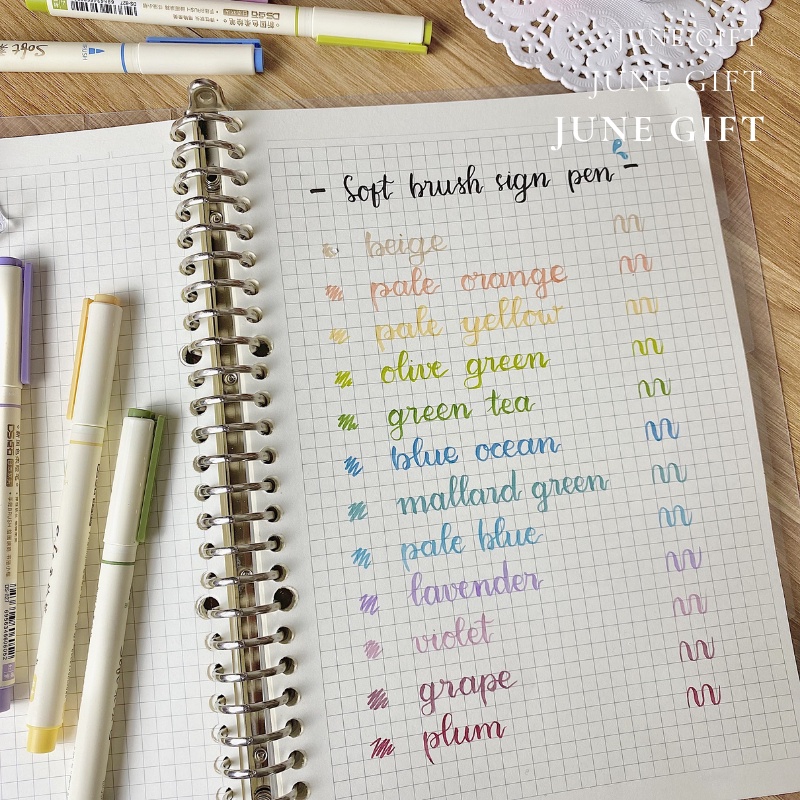 JUNE GIFT
JUNE GIFT
JUNE GIFT
Soft
BRUSH
- Soft brush sign pen -
beige
pale orange
pale yellow
olive green
green tea
blue ocean
mallard green
pale blue
lavender
violet
grape
plum